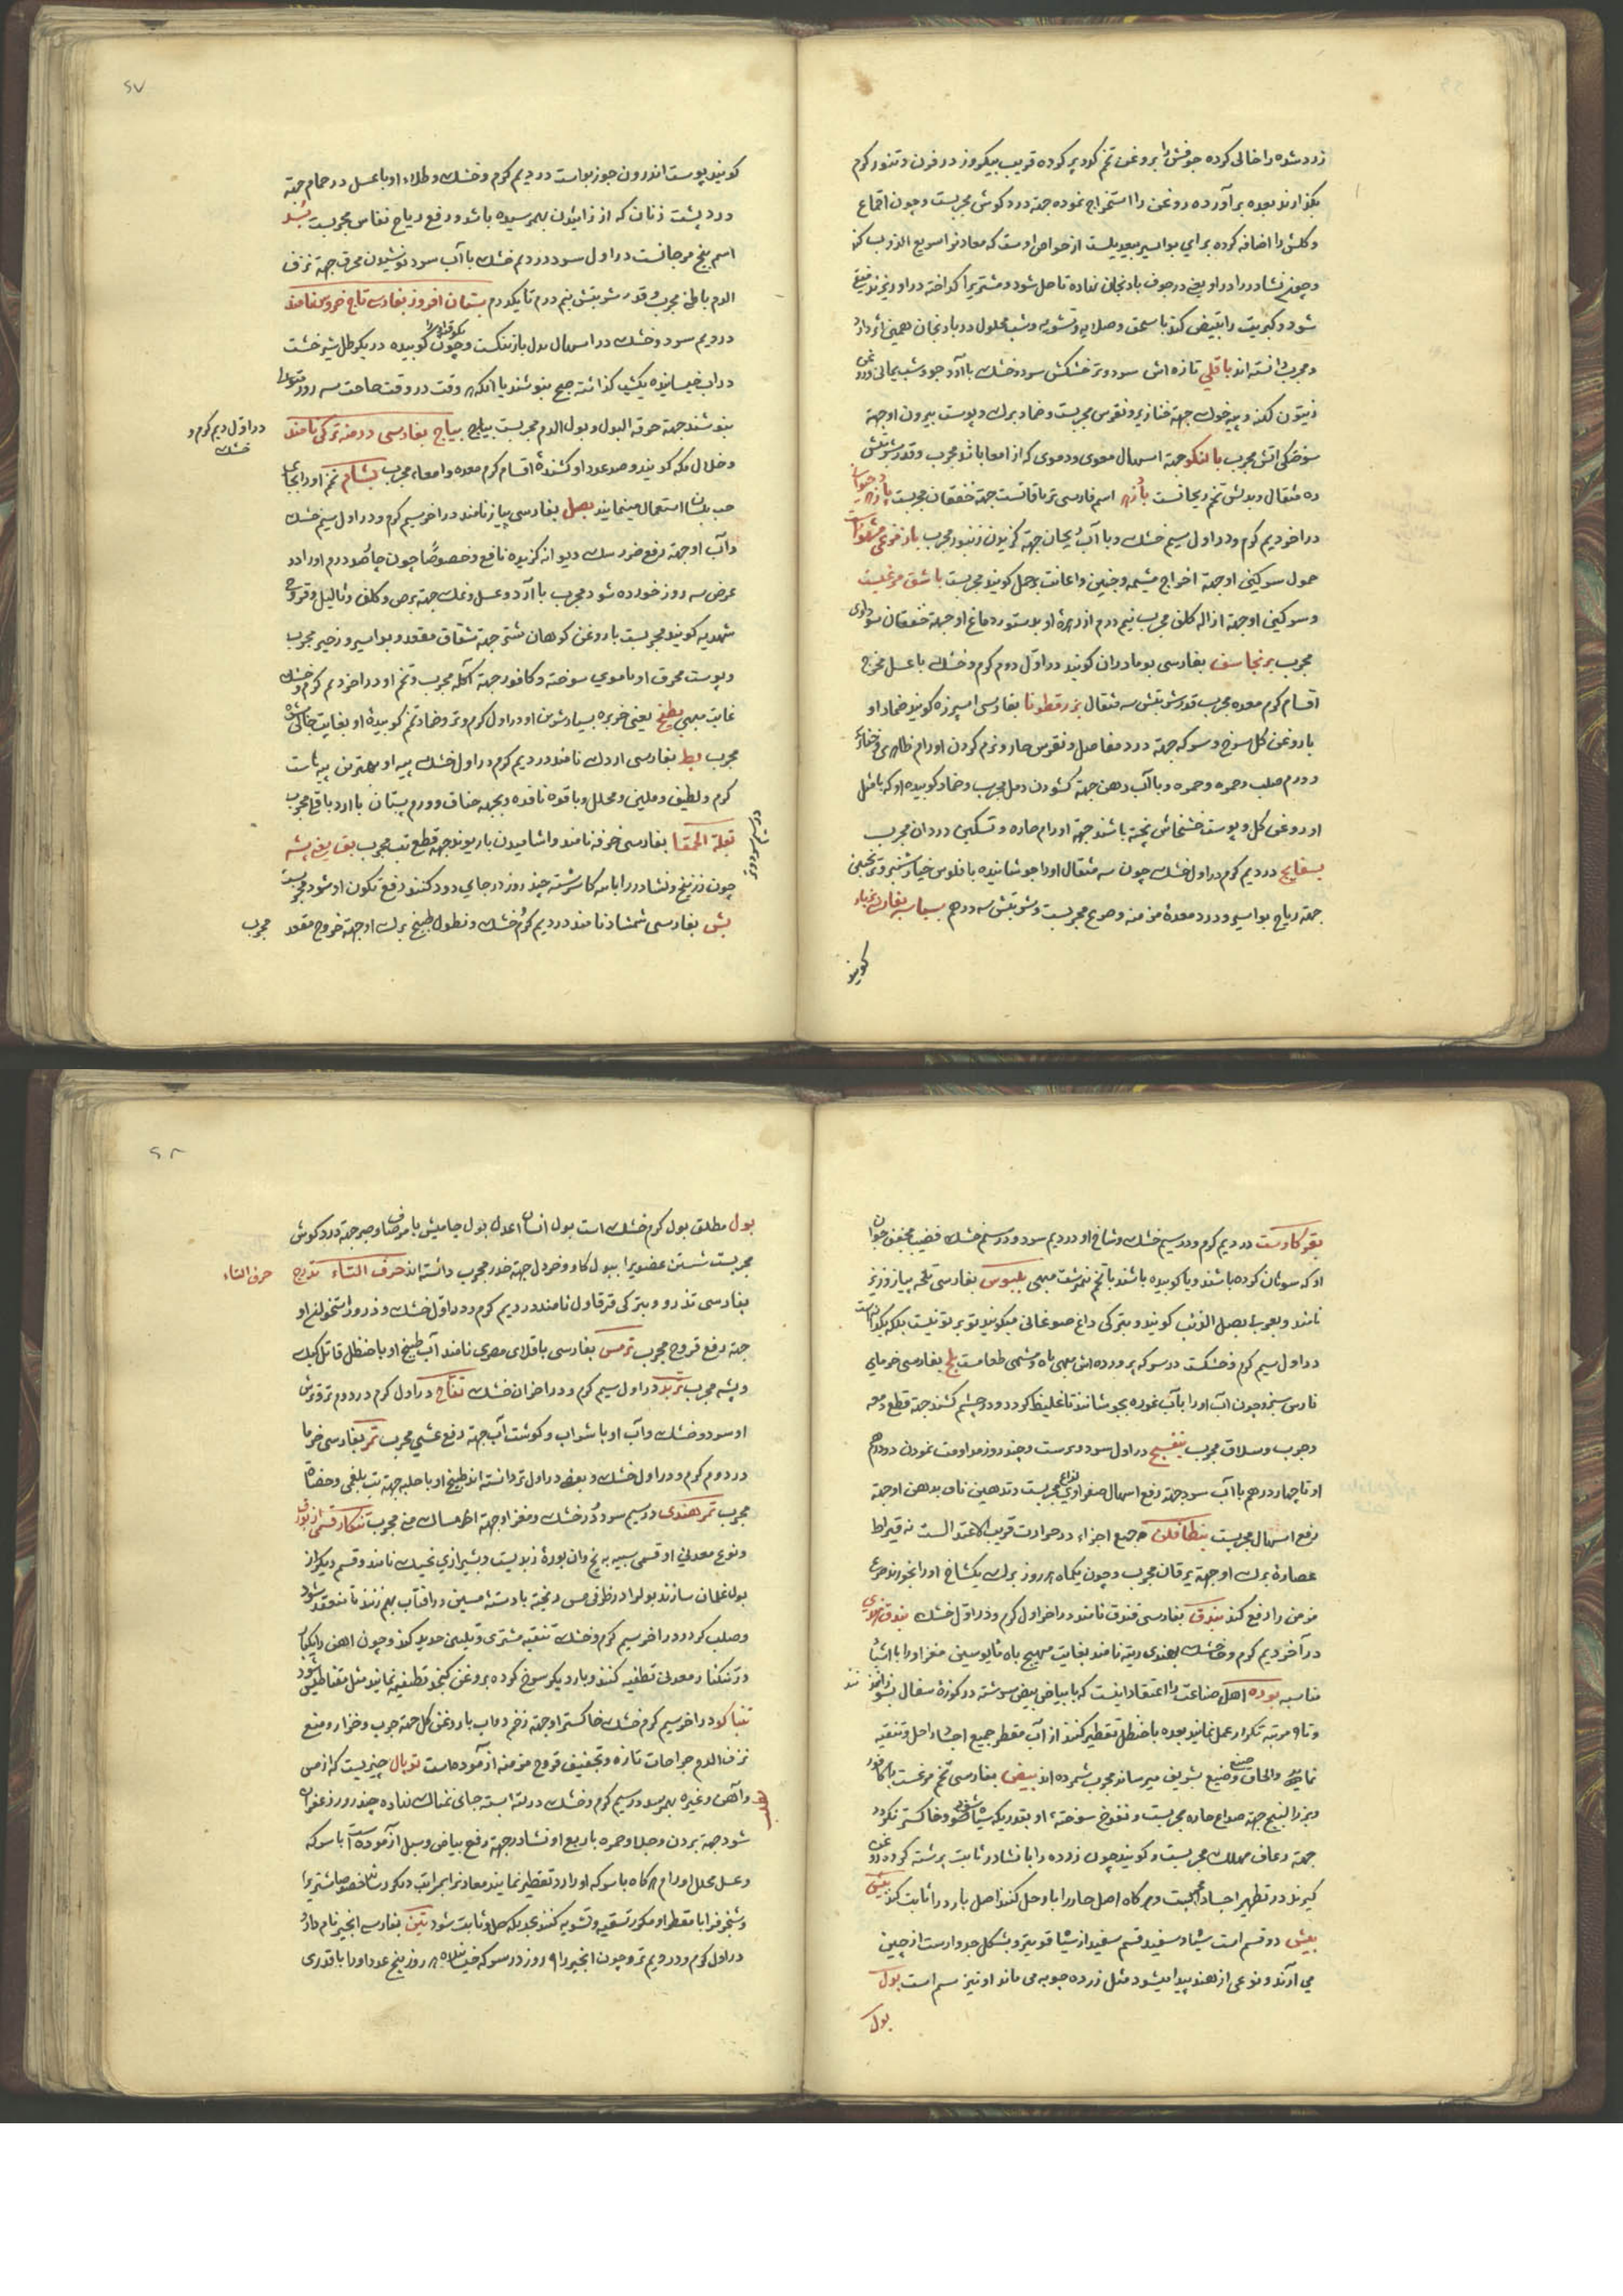 زرد شده را خالی کرده جوفش را بروغن تخم کرد پر کرده قریب بیکروز در فرن و تنور کرم
بکذارند بعده برآورده روغن را استخراج نموده جهته درد کوش مجربست و چون اقماع
و کلش را اضافه کرده برای بواسیر بیعدیلست از خواص اوست که معادنرا سریع الذوب کند
و چون نشادر را در او یعنی در جوف بادنجان نهاده تا حل شود و مشتریرا کداخته در او ریزند
شود و کبریت را تبیض کند با سحق و صلایه و تشویه و شب محلول در بادنجان همین اثر دارد
و مجرب دانسته اند باقلی تازه اش سرد و تر خشکش سرد و خشک با آرد جو و شب یمانی و روغن
زیتون کهنه و پیه خوک جهته خنازیر و نقرس مجربست و ضماد برک و پوست بیرون او جهته
سوختکی آتش مجرب بالنکو جهته اسهال معوی و دموی که از امعا باشد مجرب و قدر شربتش
ده مثقال و بدلش تخم ریحانست بادزهر اسم فارسی تریاقاتست جهته خفقان مجربست
در آخر دیم کرم و در اول سیم خشک و با آب ریحان جهته کزیدن زنبور مجرب باز مرغی مشهور است
حمول سرکین او جهته اخراج مشیمه و جنین و اعانت بر حمل کویند مجربست باشق مرغیست
و سرکین او جهته ازاله کلف مجرب نیم درم از زهره او بدستور دماغ او جهته خفقان سوداوی
مجرب برنجاسف بفارسی بومادران کویند در اول دوم کرم و خشک با عسل مخرج
اقسام کرم معده مجرب قدر شربتش سه مثقال بزرقطونا بفارسی اسپرزه کویند ضماد او
با روغن کل سرخ و سرکه جهته درد مفاصل و نقرس حار و نرم کردن اورام ظاهری و خنازیر
و ورم صلب و حمره و جمره و با آب دهن جهته کشودن دمل مجرب و ضماد کوبیده او که با مثل
او روغن کل و پوست خشخاش پخته باشند جهته اورام حاره و تسکین درد آن مجرب
بسفایج در دیم کرم در اول خشک چون سه مثقال او را جوشانیده با فلوس خیارشنبر و ترنجبین
جهته ریاح بواسیر و درد معده مزمنه و صرع مجربست و شربتش سه درهم بسباسه بفارسی
کویند
۶۷
کویند پوست اندرون جوز بواست در دیم کرم و خشک و طلاء او با عسل در حمام جهته
درد پشت زنان که از زائیدن بهمرسیده باشد و رفع ریاح نفاس مجربست بسد
اسم بیخ مرجانست در اول سرد در دیم خشک با آب سرد نوشیدن محرق جهته نزف
الدم باطن مجرب و قدر شربتش نیم درم تا یکدرم بستان افروز بفارسی تاج خروس نامند
در دیم سرد و خشک در اسهال بدل بارتنکست و چون کوبیده در یکرطل شیرخشت
در آب خیسانیده یکشب کذاشته صبح بنوشند یا آنکه وقت در وقت حاجت سه روز
بنوشند جهته حرقه البول و بول الدم مجربست بیاج بفارسی درمنه ترکی نامند
در اول دیم کرم و خشک
و خلال مکه کویند و صد عدد او کشنده اقسام کرم معده و امعاء مجرب بشام تخم او را بجای
حب بلسان استعمال مینمایند بصل بفارسی پیاز نامند در آخر سیم کرم و در اول سیم خشک
و آب او جهته رفع ضرر سک دیوانه کزیده نافع و خصوصا چون چهار صد درم او را در
عرض سه روز خورده شود مجرب با آرد و عسل و نمک جهته برص و کلف و ثالیل و قروح
شهدیه کویند مجربست با روغن کوهان شتر جهته شقاق مقعد و بواسیر و زحیر مجرب
و پوست محرق او با موی سوخته و کافور جهته آکله مجرب و تخم او در آخر دیم کرم و خشک
غایت مبهی بطیخ یعنی خربزه بسیار شیرین او در اول کرم و تر و ضماد تخم کوبیدۀ او بغایت
مجرب بط بفارسی اردک نامند در دیم کرم در اول خشک پیه او بهترین پیه هاست
کرم و لطیف و ملین و محلل و با قوه نافذه و بجهه خناق و ورم پستان با آرد باقلی مجرب
بقلة الحمقا بفارسی خرفه نامند و آشامیدن با ریوند جهته قطع تب مجرب بق یعنی پشه
در سیم سرد و تر
چون زرنیخ و نشادر را با سرکا سرشته چند روز در جای دود کنند رفع تکون او شود مجربست
بش بفارسی شمشاد نامند در دیم کرم خشک و نطول طبیخ برک او جهته خروج مقعد مجرب
بقر کاوست در دیم کرم و در سیم خشک و شاخ او در دیم سرد و در سیم خشک قضیب مجفف
او که سوهان کرده باشند و یا کوبیده باشند با تخم نیمبرشت مبهی بلبوس بفارسی تلخه پیاز و زیز
نامند و بعربی بصل الذئب کویند و بترکی داغ صوغانی میکویند
در اول سیم کرم و خشکست در سرکه پرورده اش مبهی باه و مشهی طعامست بلح بفارسی خرمای
نارس سبزه چون آب او را با آب غوره بجوشانند تا غلیظ کردد و در چشم کشند جهته قطع دمعه
و جرب و سلاق مجرب بنفسج در اول سرد و ترست و چند روز مداومت نمودن دو درهم
او تا چهار درهم با آب سرد جهته رفع اسهال صفراوی مجربست و تدهین ناف بدهن او جهته
رفع اسهال مجربست بنطافلن جمیع اجزاء در حرارت قریب الاعتدالست نه قیراط
عصارۀ برک او جهته یرقان مجرب و چون یکماه هر روز برک یکشاخ او را بخورند صرع
مزمن را رفع کند بندق بفارسی فندق نامند در آخر اول کرم و در اول خشک بندق هندی
در آخر دیم کرم و خشک بهندی ریته نامند بغایت مهیج باه مأیوسین مغز او را با اشیاء
مناسبه بوره اهل صناعت را اعتقاد اینست که با بیاض بیض سرشته در کوزۀ سفال
و تا ۹ مرتبه تکرار عمل نمایند بعده با حنظل تقطیر کنند از آب مقطر جمیع اجساد احل و تنقیه
نماید و الحاق وضیع بشریف میرساند مجرب شمرده اند بیض بفارسی تخم مرغست با کافور
و بزرالبنج جهته صداع حاره مجربست و نفوخ سوخته، او بقدریکه سیاه شود و خاکستر نکردد
جهته رعاف مهلک مجربست و کویند چون زرده را با نشادر ثابت برشته کرده روغن
کیرند در تطهیر اجساد مجربست و هرکاه اصل حار را با و حل کنند اصل بارد را ثابت کند بیش
بیش دو قسم است سیاه و سفید قسم سفید از سیاه قویتر و بشکل جدوارست از چین
می آرند و نوعی از هند پیدا میشود مثل زرده چوبه می ماند او نیز سم است بول
بول
۶۸
بول مطلق بول کرم خشک است بول انسان اعدل بول جاموس با مرصاف و صبر جهته درد کوش
مجربست شستن عضویرا ببول کاو و خردل جهته خدر مجرب دانسته اند حرف التاء تدرج
حرف التاء
بفارسی تذرو و بترکی قرقاول نامند در دیم کرم و در اول خشک و ذرور استخوان او
جهته رفع قروح مجرب ترمس بفارسی باقلای مصری نامند آب طبیخ او با حنظل قاتل کیک
و پشه مجرب تربد در اول سیم کرم و در آخر آن خشک تفاح در اول کرم در دوم تر و ترش
او سرد و خشک و آب او با شراب و کوشت آب جهته رفع غشی مجرب تمر بفارسی خرما
در دوم کرم و در اول خشک و بعضی در اول تر دانسته اند طبیخ او با حلبه جهته تب بلغمی و حصاة
مجرب تمر هندی در سیم سرد و در خشک و مغز او جهته امساک منی مجرب تنکار قسمی از بوره
و نوع معدنی او قسمی شبیه به یخ و آن بورۀ زبدیست و بشیرازی نامند و قسم دیکر از
بول غلمان سازند بولرا در ظرفی مس ریخته با دستۀ مسین در آفتاب بهم زنند تا منعقد شود
و صلب کردد در آخر سیم کرم و خشک تنقیه مشتری و تلیین حدید کند و چون آهن را یکبار
در تنکار معدنی تطفیه کنند و بار دیکر سرخ کرده بروغن کنجد تطفیه نمایند مثل مغناطیس شود
تنباکو در آخر سیم کرم خشک خاکستر او جهته زخم دواب با روغن کل جهته جرب و خزاز و منع
نزف الدم جراحات تازه و تجفیف قروح مزمنه از آزموده است توبال چیزیست که از مس
و آهن و غیره بهمرسد در سیم کرم و خشک در لته بسته جای نمناک نهاده چند روز زعفران
شود جهته بردن و جلا و حمره با ربع او نشادر جهته رفع بیاض و سبل آزموده است با سرکه
و عسل محلل اورام هرکاه با سرکه او را در تقطیر نمایند معادنرا بمراتب دیکر رساند خصوصا مشتریرا
و شنجرفرا با مقطر او مکرر تسقیه و تشویه کنند بحدیکه حل و ثابت شود تین بفارسی انجیر نام دارد
در اول کرم و در دیم تر و چون انجیر را ۹ روز در سرکه خیسانده هر روز پنج عدد او را با قدری